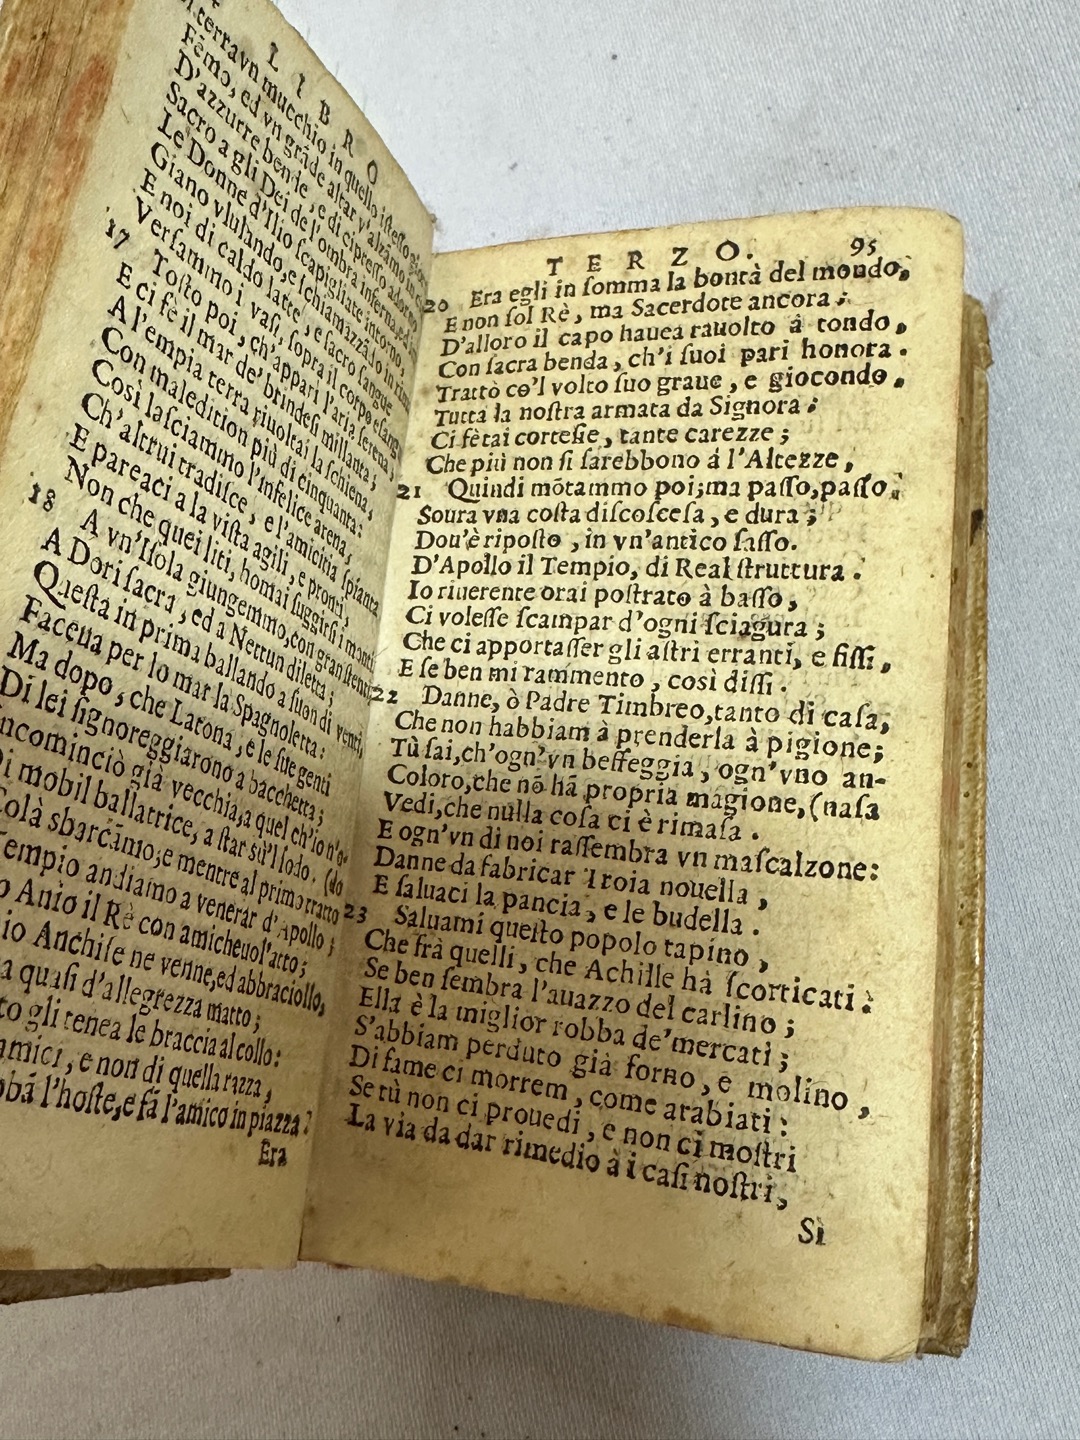 LIBRO
terra vn mucchio in quello iſteſſo
Fēmo, ed vn grāde altar v'alzāmo in
D'azzurre bende, e di cipreſſo adorno
Sacro a gli Dei de l'ombra inferna, ed
Le Donne d'Ilio ſcapigliate intorno,
Giano vlulando, e ſchiamazzādo in rima
E noi di caldo latte, e ſacro ſangue
Verſammo i vaſi, ſopra il corpo eſangue
17 Toſto poi, ch'apparì l'aria ſerena,
E ci fè il mar de' brindeſi millanta;
A l'empia terra riuoltai la ſchiena,
Con maledition più di cinquanta:
Così laſciammo l'infelice arena,
Ch'altrui tradiſce, e l'amicitia ſpianta
E pareaci a la viſta agili, e pronti,
Non che quei liti, homai fuggirſi i monti
18 A vn'Iſola giungemmo, con gran ſtenti,
A Dori ſacra, ed a Nettun diletta;
Queſta in prima ballando a ſuon di venti,
Facena per lo mar la Spagnoletta:
Ma dopo, che Latona, e le ſue genti
Di lei ſignoreggiarono a bacchetta;
Incominciò già vecchia, a quel ch'io n'o-
Di mobil ballatrice, a ſtar sù'l ſodo. (do
Colà sbarcāmo, e mentre al primo tratto
Tempio andiamo a venerar d'Apollo;
Anio il Rè con amicheuol'atto;
io Anchiſe ne venne, ed abbraciollo,
a quaſi d'allegrezza matto;
to gli tenea le braccia al collo:
amici, e non di quella razza,
l'hoſte, e fā l'amico in piazza?
Era
TERZO. 95
20 Era egli in ſomma la bontà del mondo,
E non ſol Rè, ma Sacerdote ancora;
D'alloro il capo hauea rauolto à tondo,
Con ſacra benda, ch'i ſuoi pari honora.
Trattò co'l volto ſuo graue, e giocondo,
Tutta la noſtra armata da Signora;
Ci fè tai corteſie, tante carezze;
Che più non ſi farebbono à l'Altezze,
21 Quindi mōtammo poi; ma paſſo, paſſo,
Soura vna coſta diſcoſceſa, e dura;
Dou'è ripoſto, in vn'antico ſaſſo.
D'Apollo il Tempio, di Real ſtruttura.
Io riuerente orai poſtrato à baſſo,
Ci voleſſe ſcampar d'ogni ſciagura;
Che ci apportaſſer gli aſtri erranti, e fiſſi,
E ſe ben mi rammento, così diſſi.
22 Danne, ò Padre Timbreo, tanto di caſa,
Che non habbiam à prenderla à pigione;
Tù ſai, ch'ogn'vn beffeggia, ogn'vno an-
Coloro, che nō hā propria magione, (naſa
Vedi, che nulla coſa ci è rimaſa.
E ogn'vn di noi raſſembra vn maſcalzone:
Danne da fabricar Troia nouella,
E ſaluaci la pancia, e le budella.
23 Saluami queſto popolo tapino,
Che frà quelli, che Achille hà ſcorticati:
Se ben ſembra l'auazzo del carlino;
Ella è la miglior robba de'mercati;
S'abbiam perduto già forno, e molino,
Di fame ci morrem, come arabiati:
Se tù non ci prouedi, e non ci moſtri
La via da dar rimedio à i caſi noſtri,
Sì